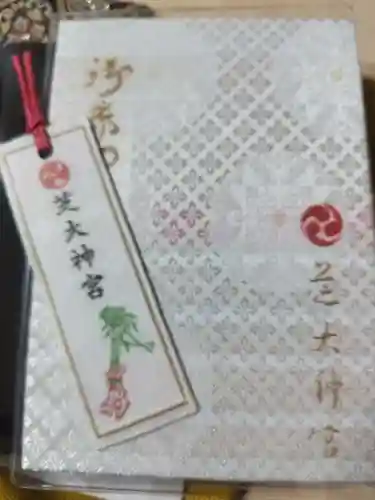 御朱印
芝大神宮
芝大神宮